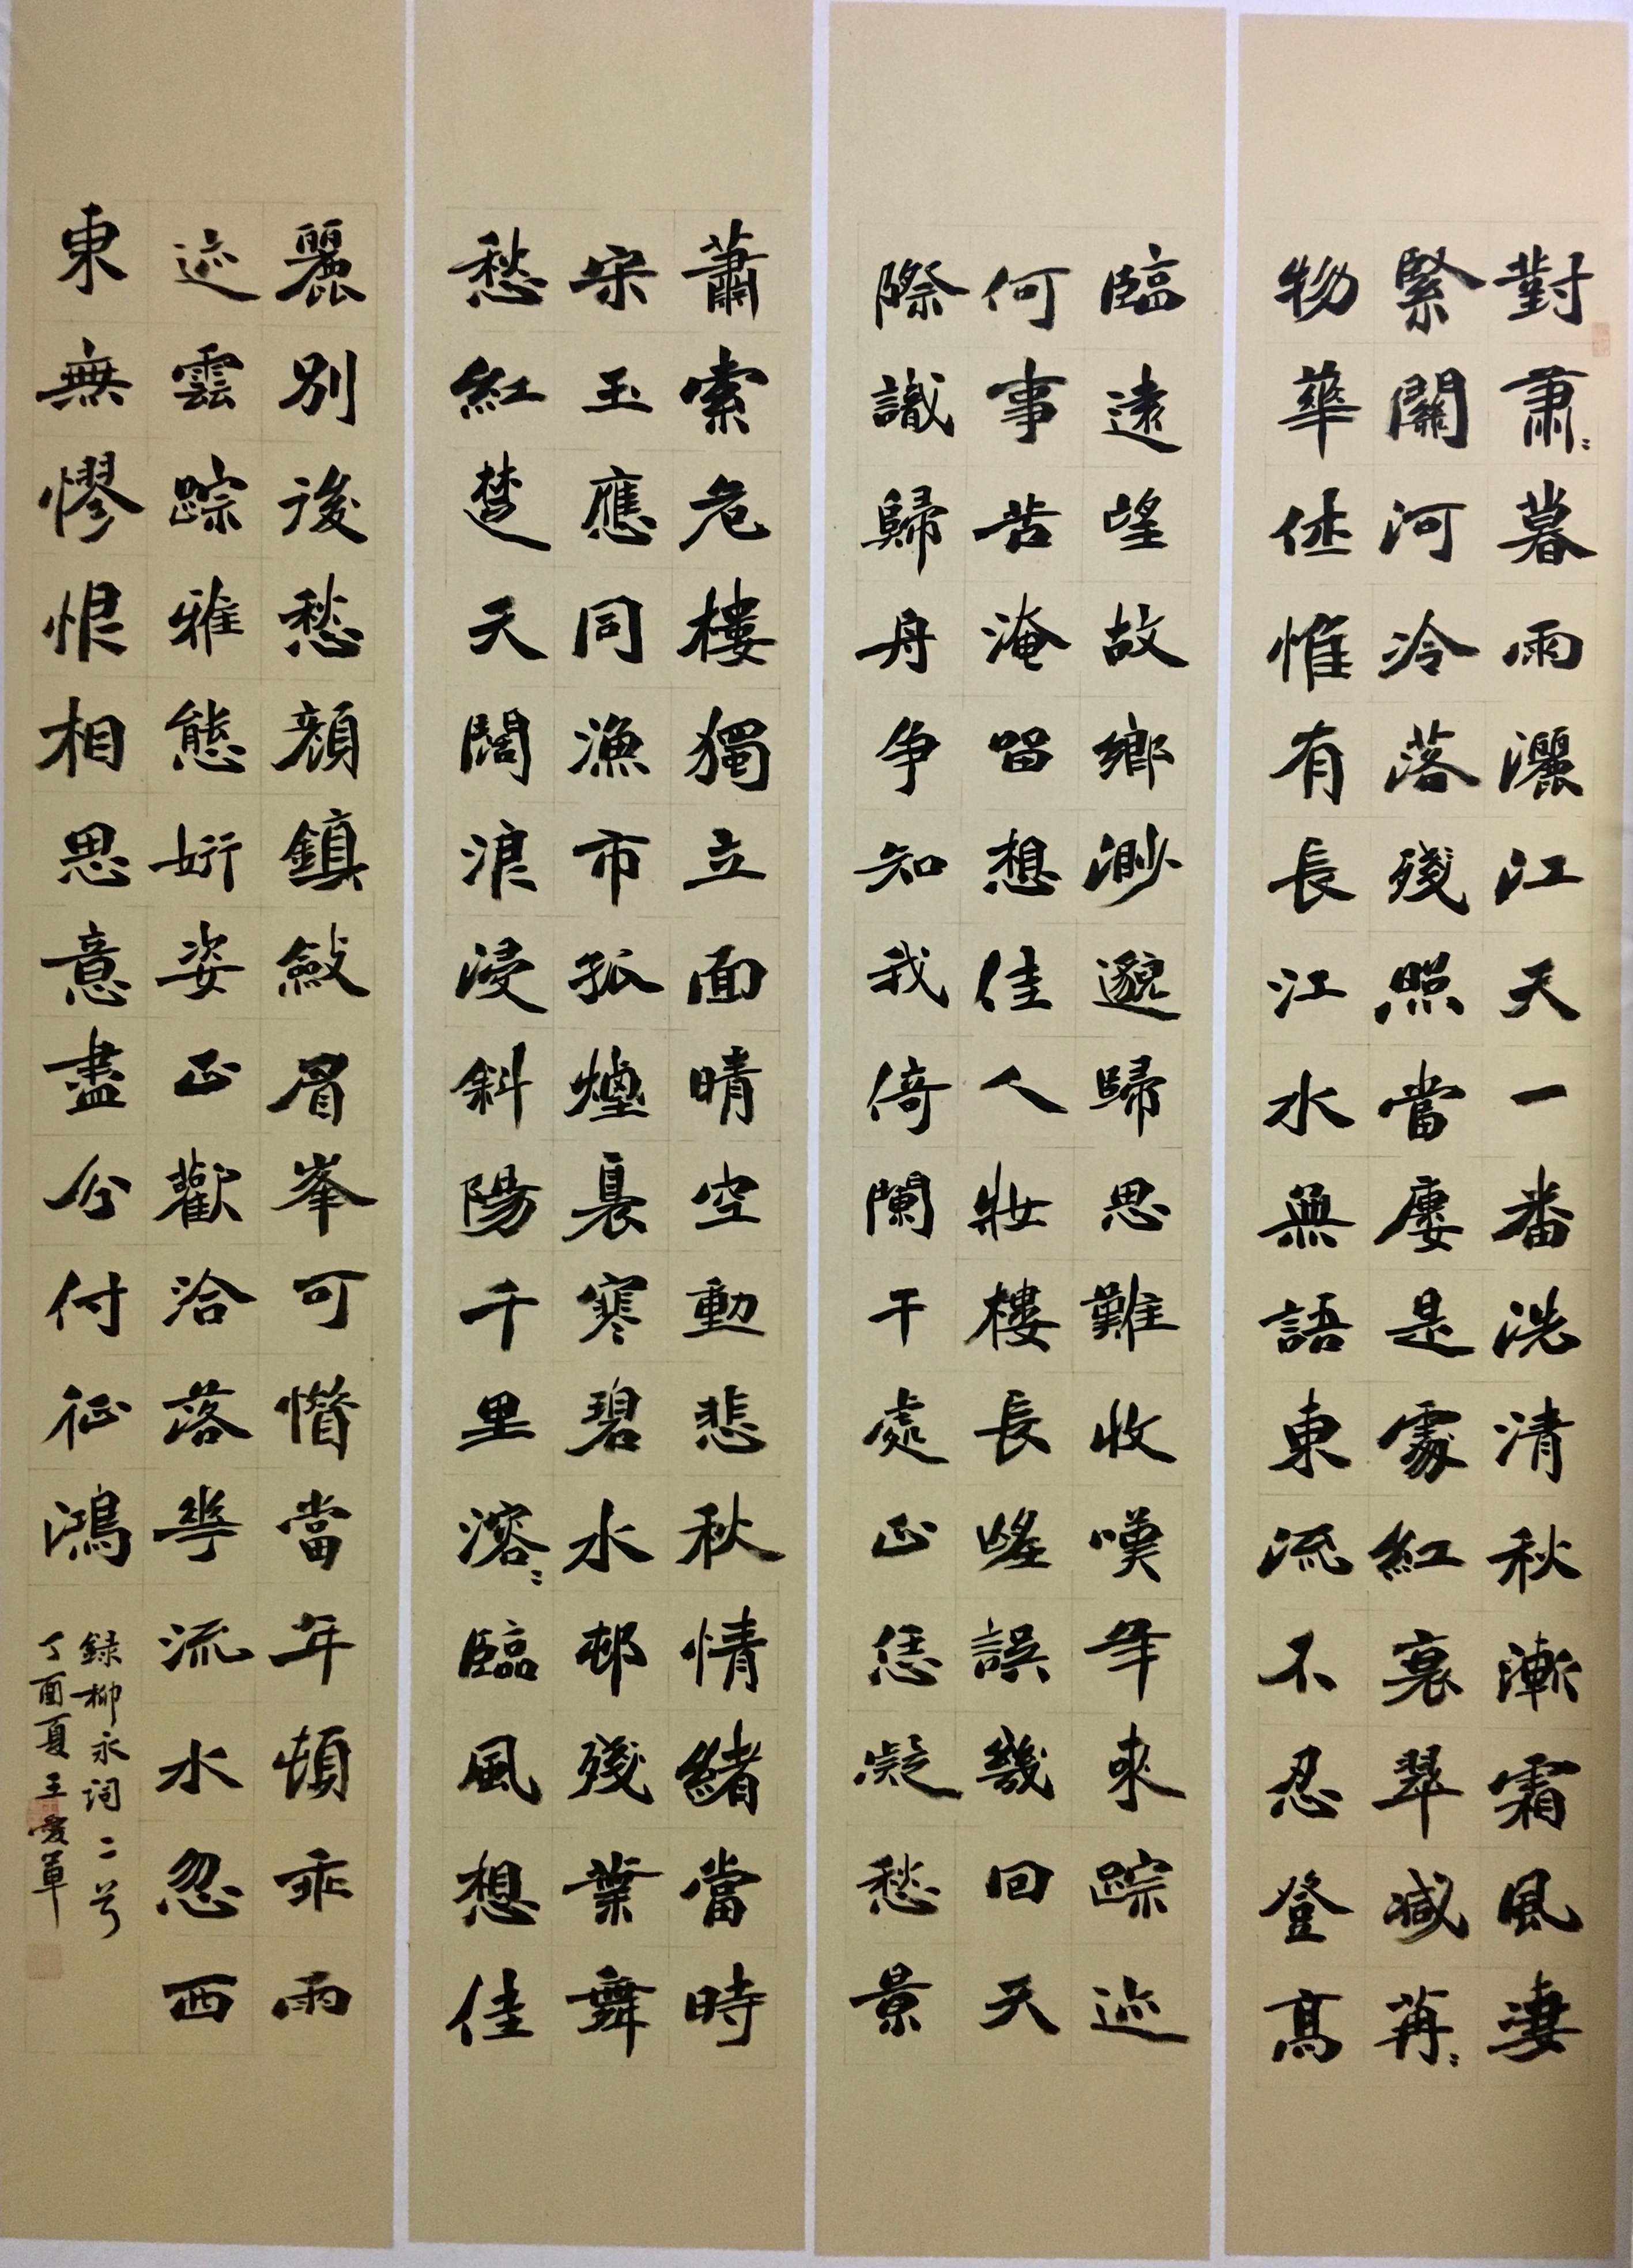 對蕭〻暮雨灑江天一番洗清秋漸霜風淒
緊關河冷落殘照當廔是處紅衰翠減苒〻
物華休惟有長江水無語東流不忍登高
臨遠望故鄉渺邈歸思難收嘆年來踪迹
何事苦淹留想佳人妝樓長望誤幾回天
際識歸舟爭知我倚闌干處正恁凝愁景
蕭索危樓獨立面晴空動悲秋情緒當時
宋玉應同漁市孤煙裊寒碧水邨殘葉舞
愁紅楚天闊浪浸斜陽千里溶〻臨風想佳
麗別後愁顏鎮斂眉峯可惜當年頓乖雨
迹雲踪雅態妍姿正歡洽落花流水忽西
東無憀恨相思意盡分付征鴻
録柳永詞二首
丁酉夏王愛軍